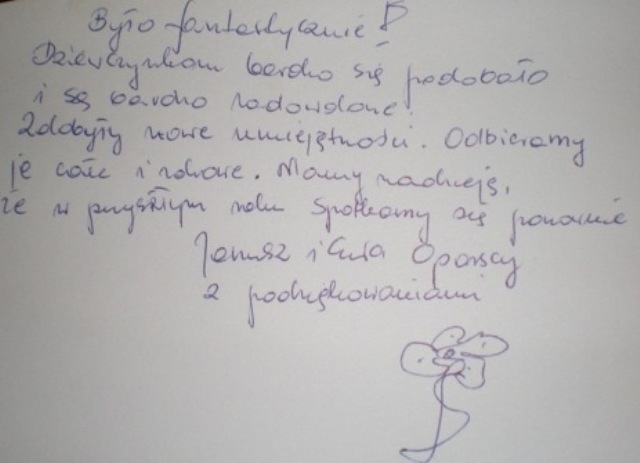 Było fantastycznie!
Dziewczynkom bardzo się podobało
i są bardzo zadowolone.
Zdobyły nowe umiejętności. Odbieramy
je całe i zdrowe. Mamy nadzieję,
że w przyszłym roku spotkamy się ponownie
Janusz i Ewa
z podziękowaniami